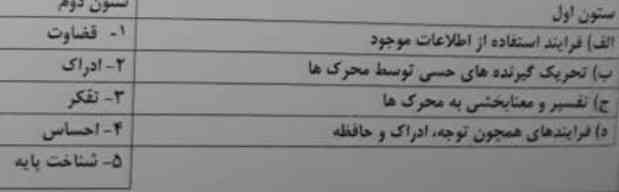 ستون اول
ستون دوم
الف) فرایند استفاده از اطلاعات موجود
۱- قضاوت
ب) تحریک گیرنده های حسی توسط محرک ها
۲- ادراک
ج) تفسیر و معنابخشی به محرک ها
۳- تفکر
د) فرایندهای همچون توجه، ادراک و حافظه
۴- احساس
۵- شناخت پایه